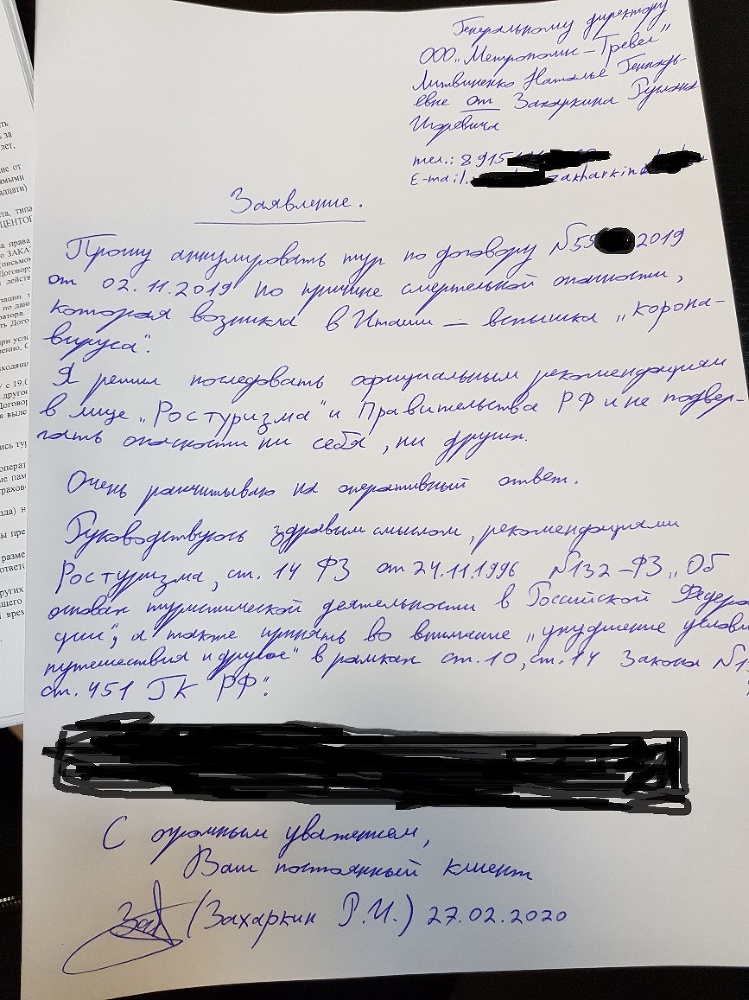 Генеральному директору
ООО „Метрополис – Тревел"
Литвиненко Наталье Геннадь-
евне от Захаркина Руслана
Игоревича
тел.: 8915
E-mail. zakharkin
Заявление.
Прошу аннулировать тур по договору №59 2019
от 02.11.2019 по причине смертельной опасности,
которая возникла в Италии – вспышка „корона-
вируса".
Я решил последовать официальным рекомендациям
в лице „Ростуризма" и Правительства РФ и не подвер-
гать опасности ни себя, ни других.
Очень рачитываю на оперативный ответ.
Руководствуюсь здравым смыслом, рекомендациями
Ростуризма, ст. 14 ФЗ от 24.11.1996 №132-ФЗ „Об
основах туристической деятельности в Российской Федера
ции", а также принять во внимание „ухудшение услови
путешествия и другое" в рамках ст. 10, ст. 14 Закона №13
ст. 451 ГК РФ".
С огромным уважением,
Ваш постоянный клиент
(Захаркин Р.И.) 27.02.2020